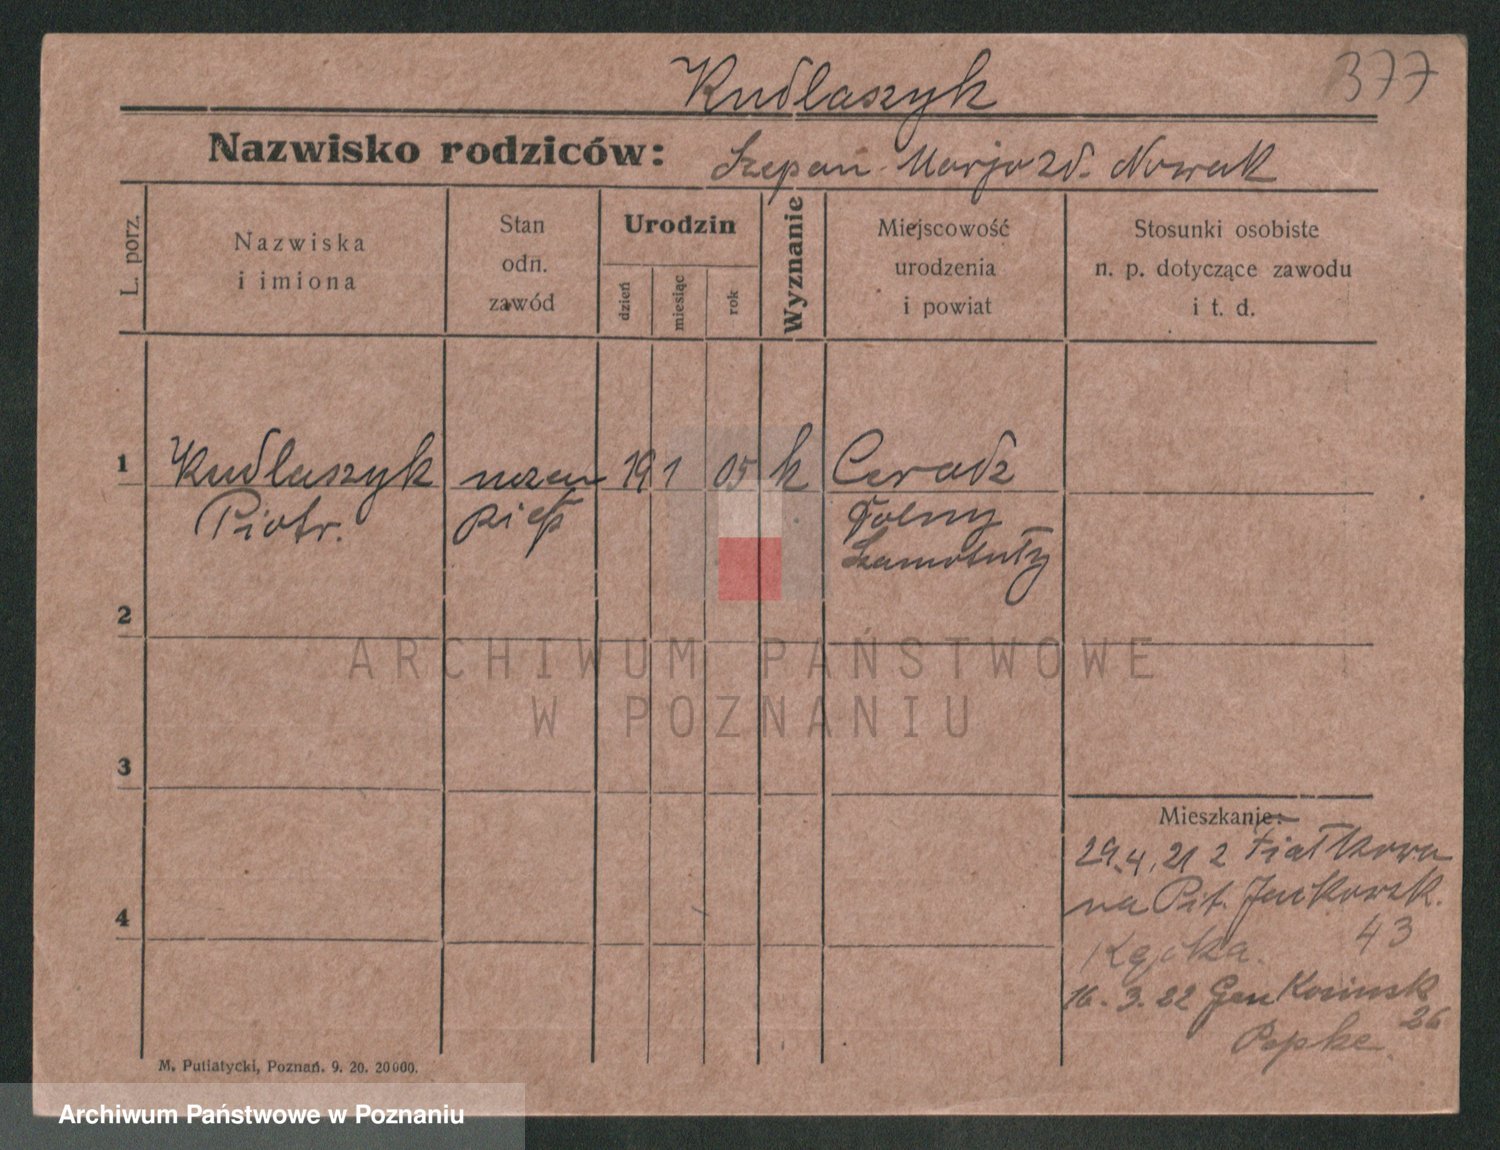 Kudlaszyk
377
Nazwisko rodziców: Szepan Marja zd. Nowak
L. porz.
Nazwiska
i imiona
Stan
odn.
zawód
Urodzin
dzień
miesiąc
rok
Wyznanie
Miejscowość
urodzenia
i powiat
Stosunki osobiste
n. p. dotyczące zawodu
i t. d.
1
Kudlaszyk
Piotr.
uczeń
19 1 05 k
Ceradz
Dolny
Szamotuły
2
3
4
Mieszkanie:
29.4.21 z Fiałkowa
na Pit. Jackowsk.
43
16.3.22 Gen Kosinsk
26
Popke
M. Putiatycki, Poznań. 9. 20. 20000.
ARCHIWUM PAŃSTWOWE
W POZNANIU
Archiwum Państwowe w Poznaniu